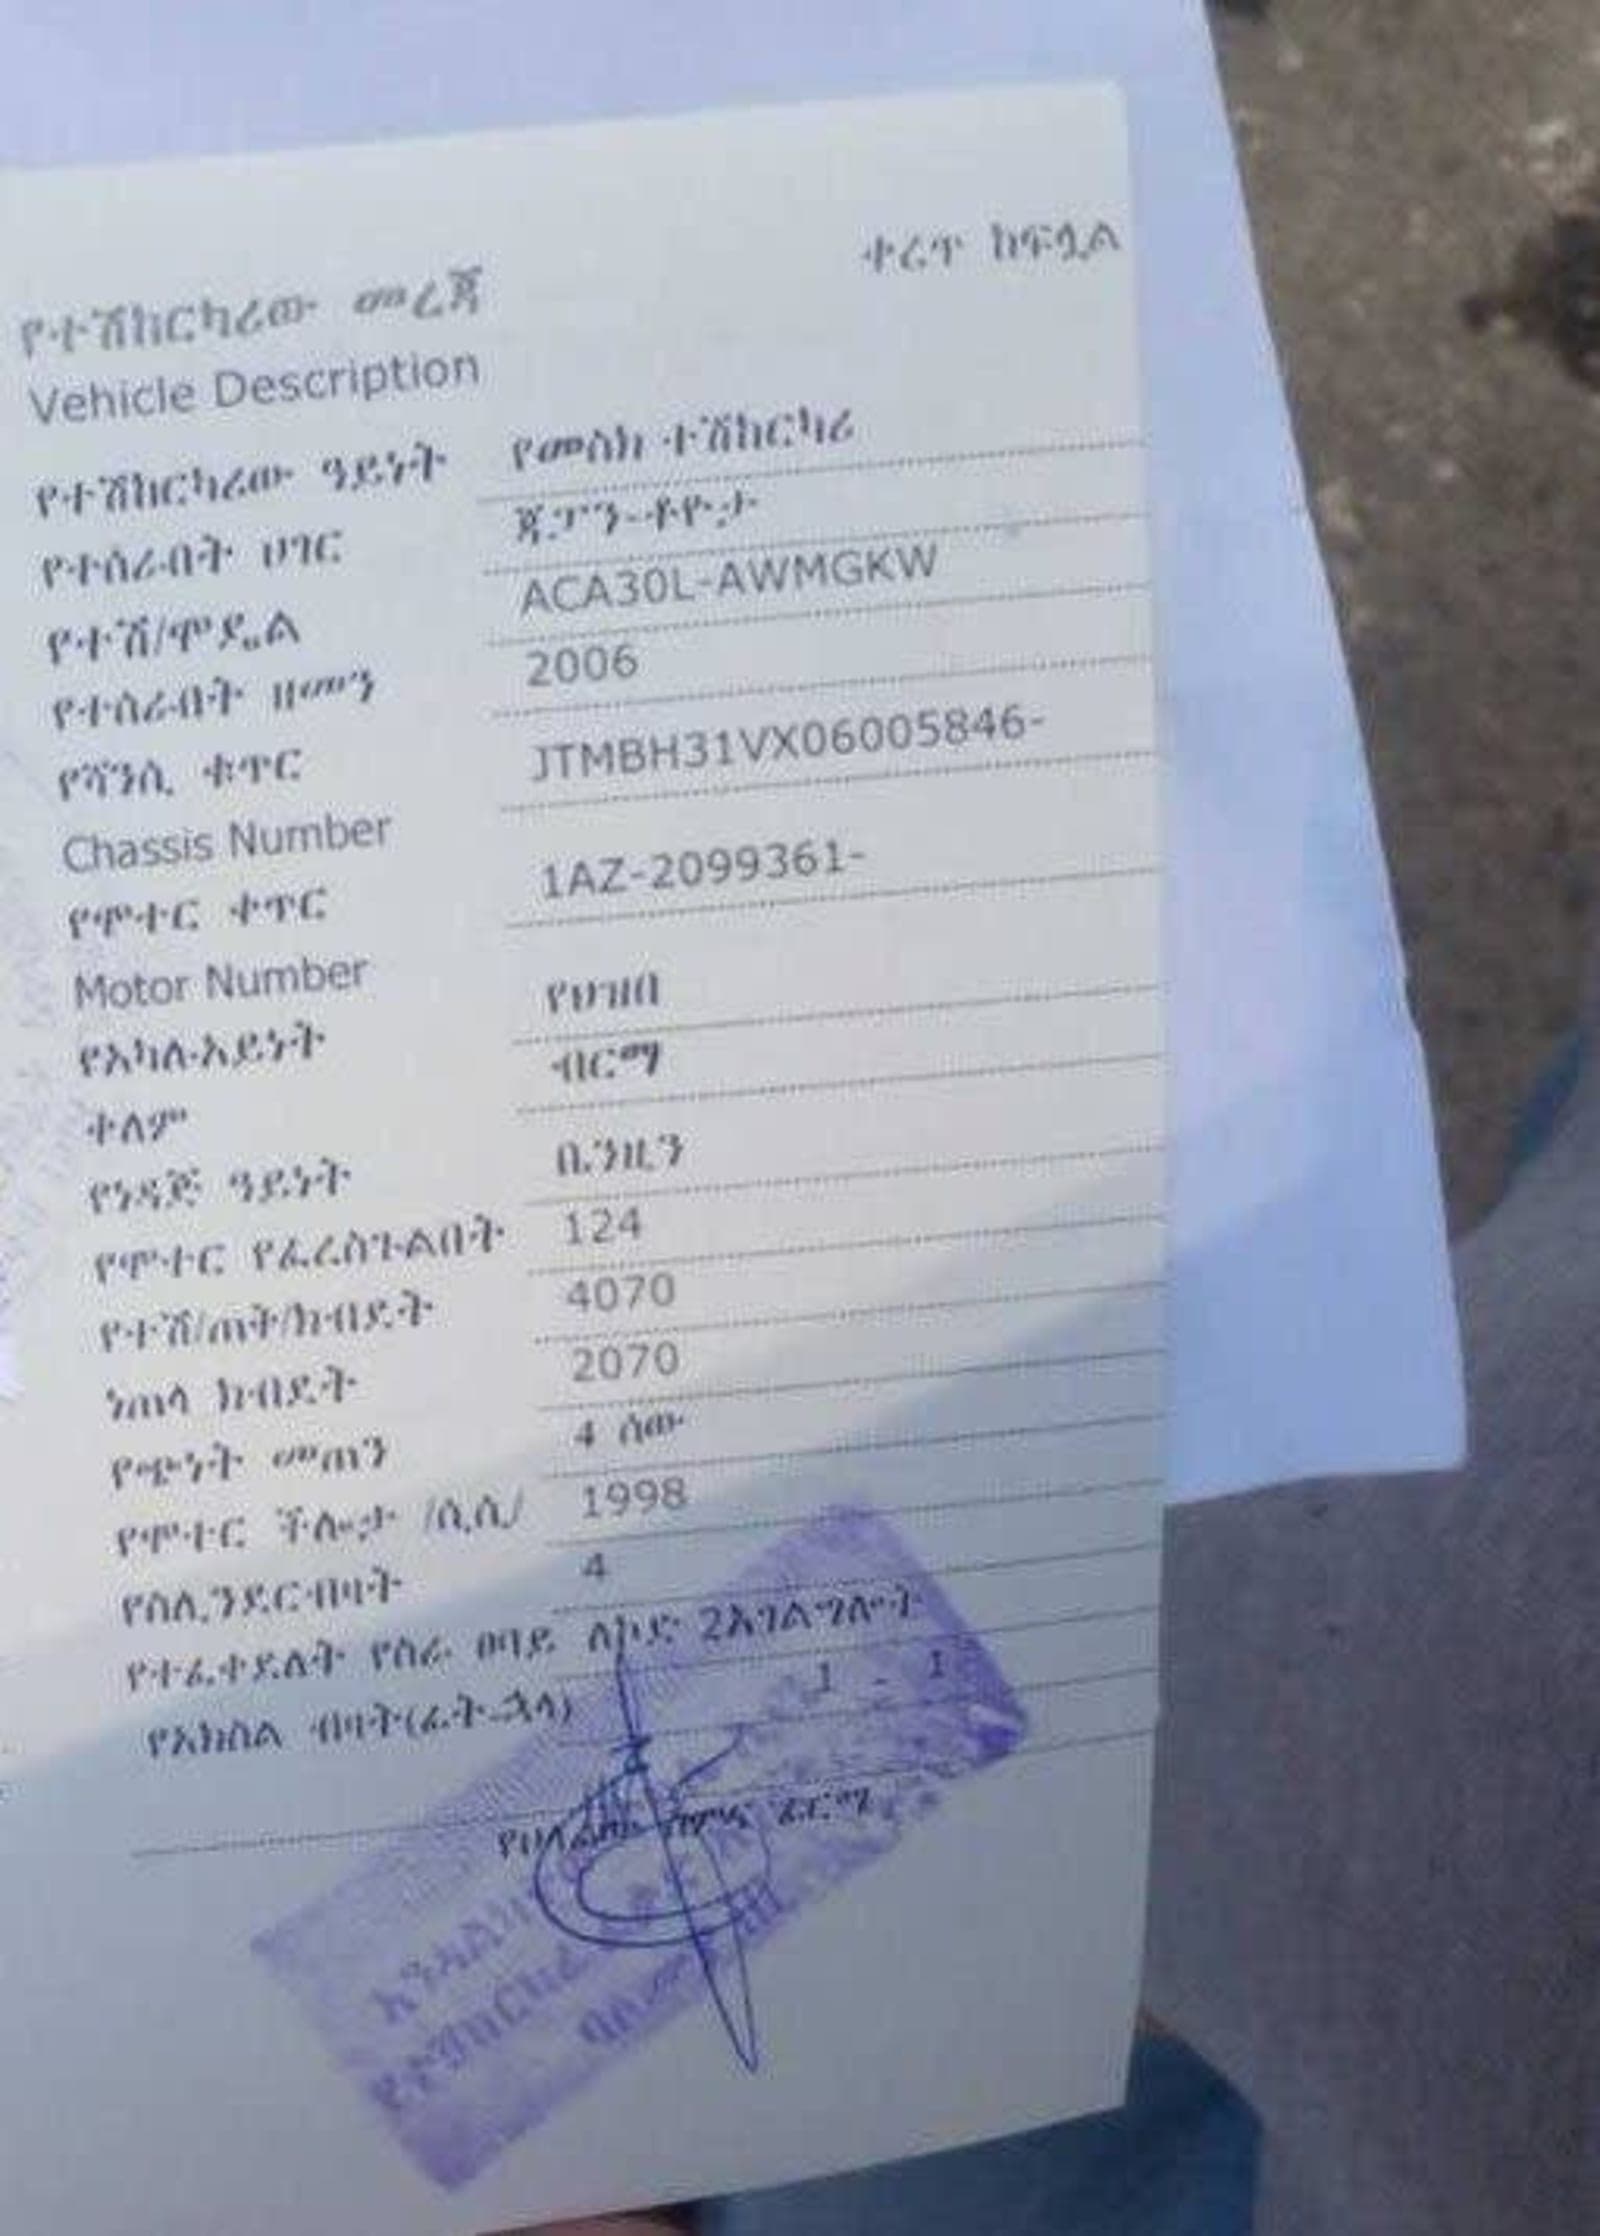 ቀረጥ ከፍሏል
የተሽከርካሪው መረጃ
Vehicle Description
የተሽከርካሪው ዓይነት የመስክ ተሽከርካሪ
የተሰራበት ሀገር ጃፓን-ቶዮታ
የተሽ/ሞዴል ACA30L-AWMGKW
የተሰራበት ዘመን 2006
የሻንሲ ቁጥር JTMBH31VX06005846-
Chassis Number
የሞተር ቀጥር 1AZ-2099361-
Motor Number
የአካል አይነት የህዝብ
ቀለም ብርማ
የነዳጅ ዓይነት ቤንዚን
የሞተር የፈረስጉልበት 124
የተሽ/ጠቅ/ክብደት 4070
ነጠላ ክብደት 2070
የጭነት መጠን 4 ሰው
የሞተር ችሎታ /ሲሲ/ 1998
የሲሊንደር ብዛት 4
የተፈቀደለት የስራ ፀባይ ለኮድ 2አገልግሎት
የአክስል ብዛት(ፊት-ኋላ) 1 - 1
ፊርማ